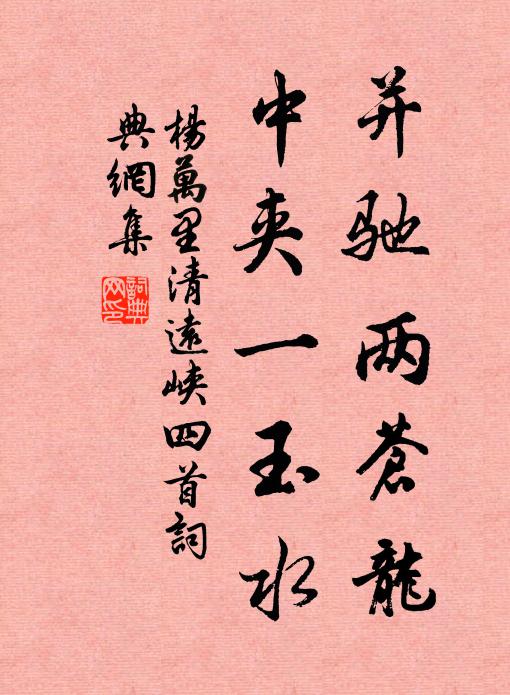 并驰两苍龙
中夹一玉水
杨万里清远峡四首词
典網集
詞典網印